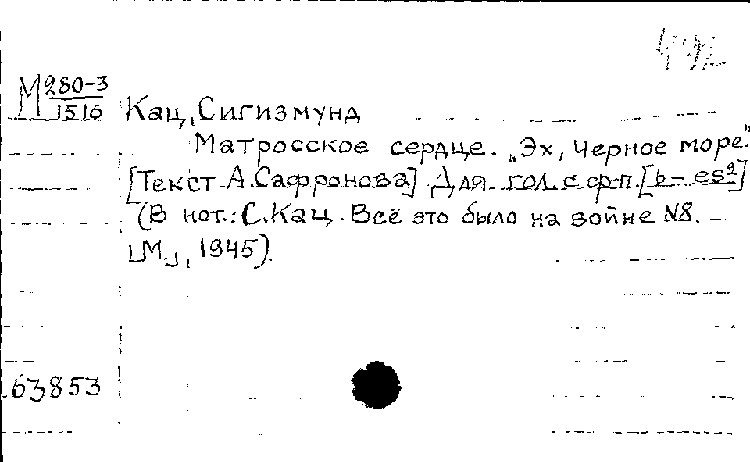 М 280-3
1516
Кац, Сигизмунд
Матросское сердце. "Эх, Черное море."
[Текст А. Сафронова] Для гол. с ф-п. [b-es²]
(В нот.: С. Кац. Всё это было на войне №8.
[М.], 1945).
63853